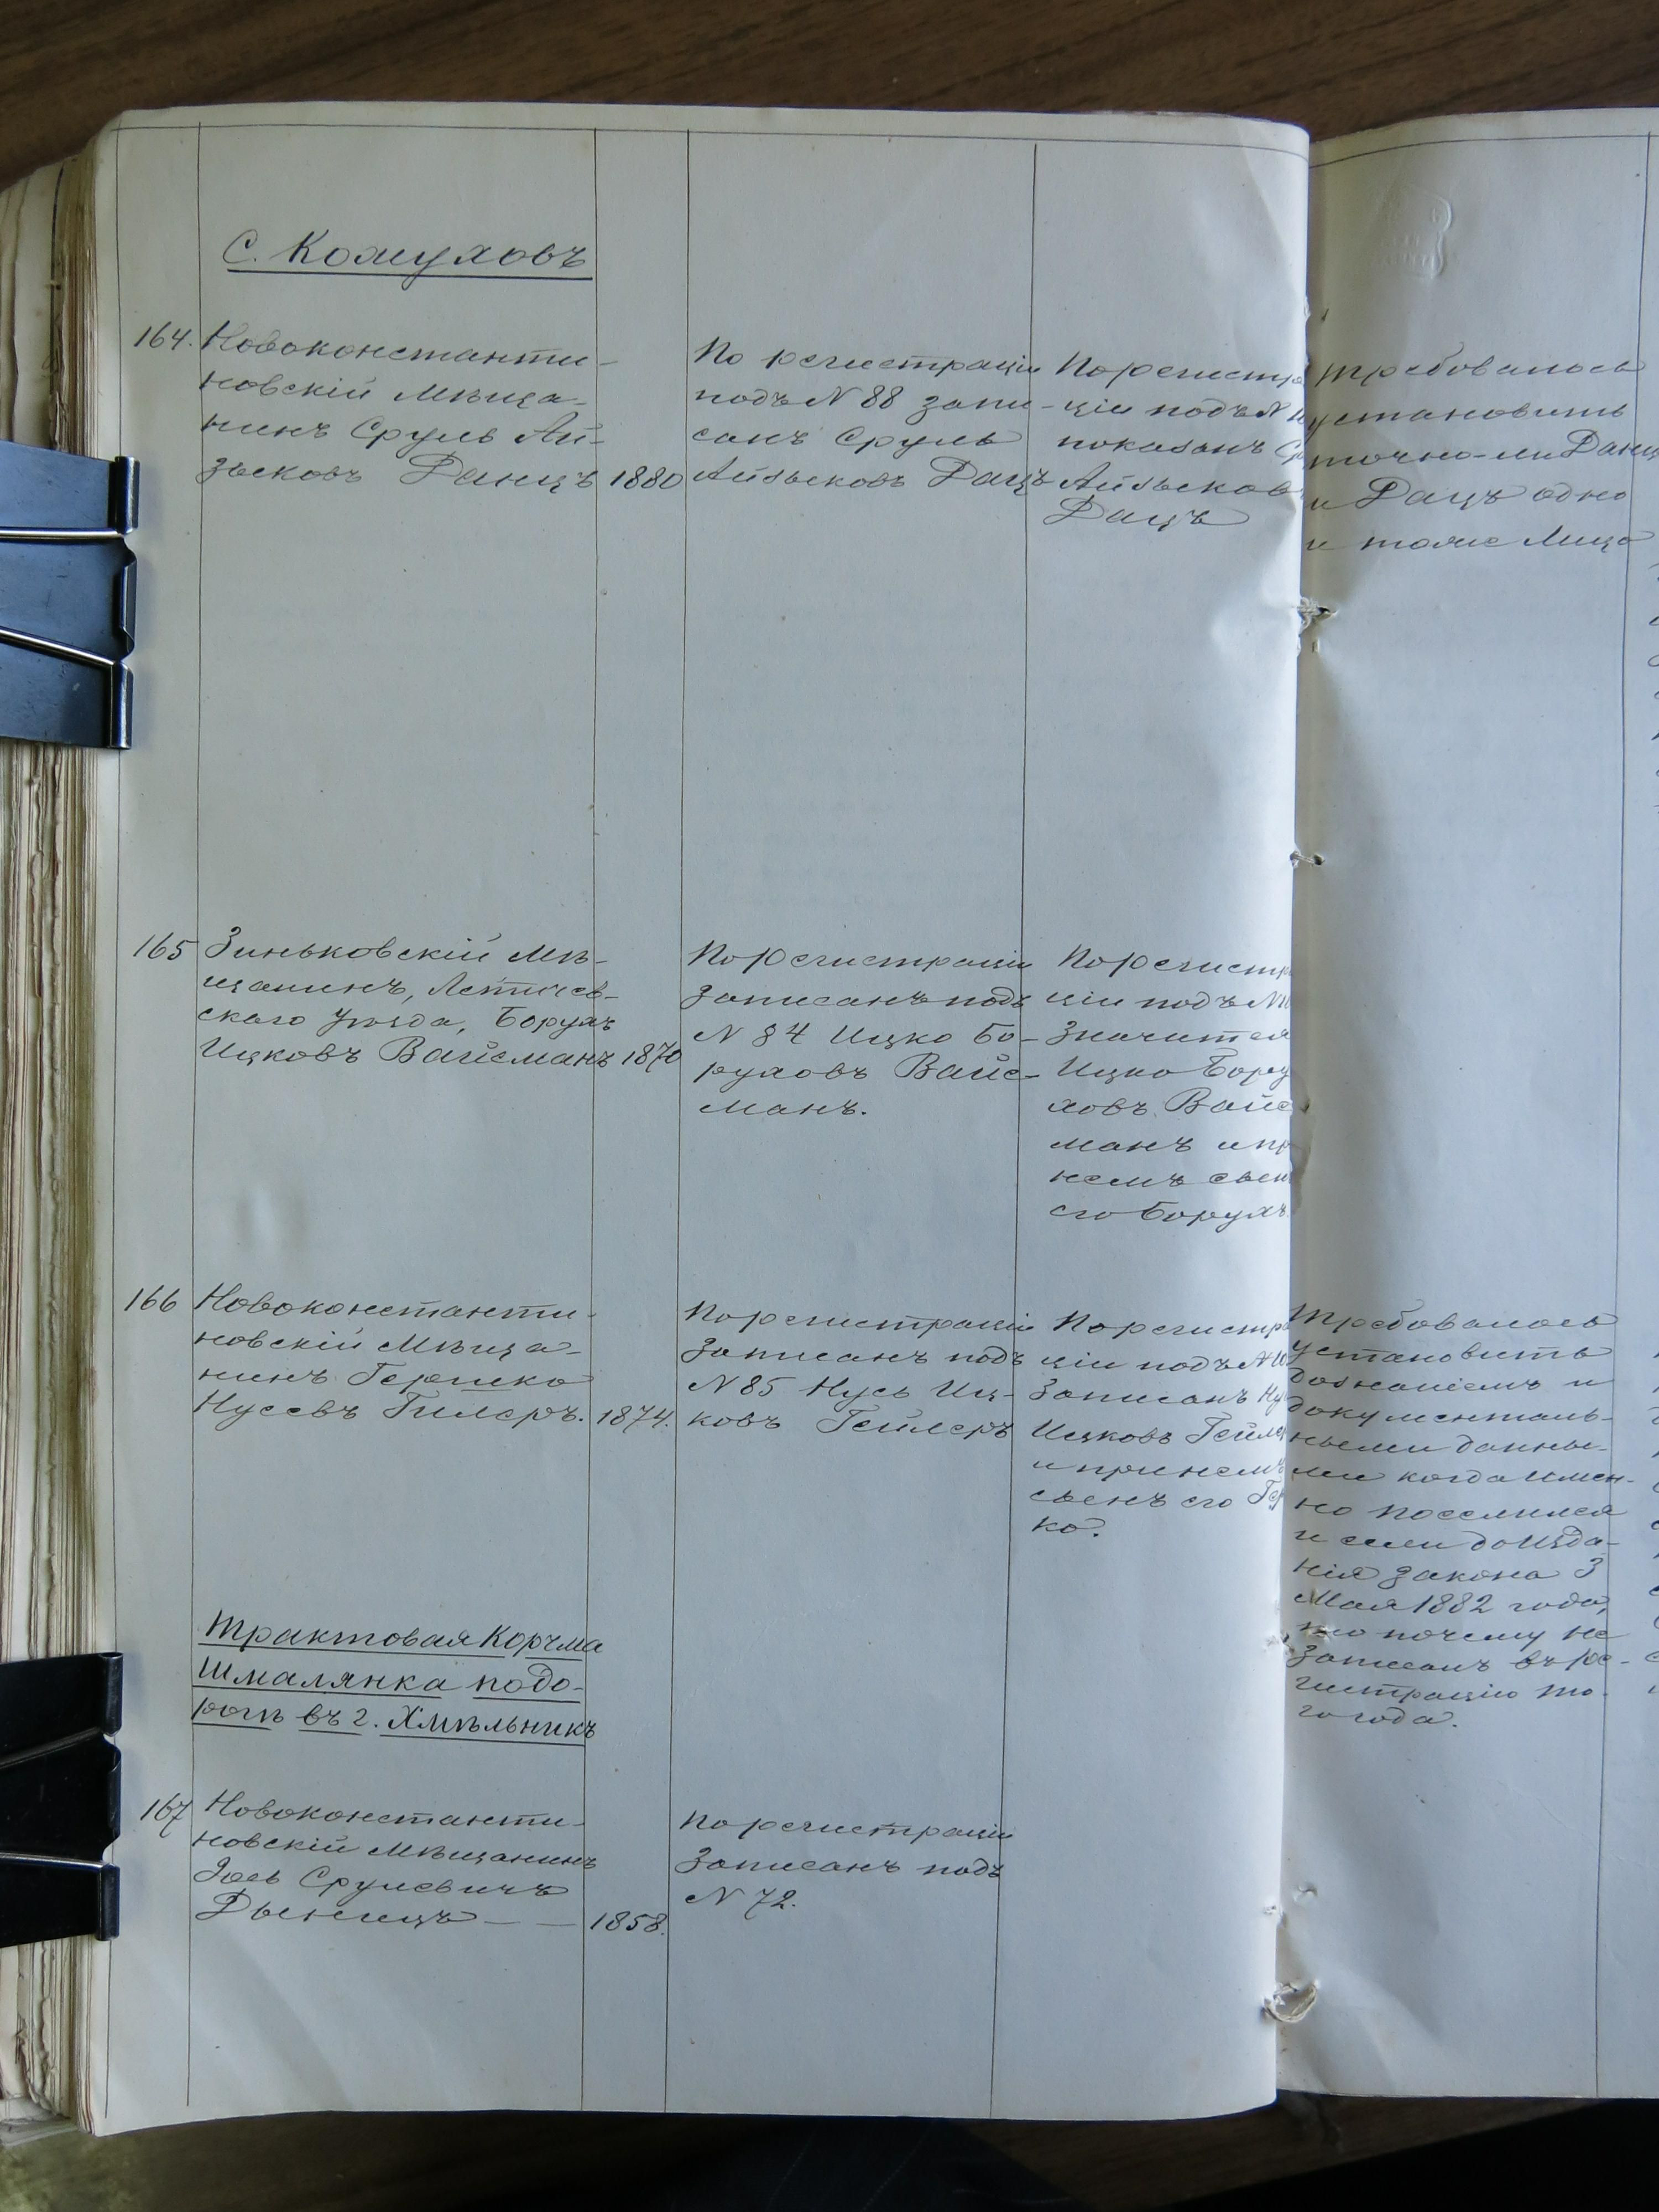 С. Кожуховъ
164. Новоконстанти-
новскій Мѣща-
нинъ Сруль Ай-
зьековъ Данцъ 1880
По регистраціи
подъ N 88 запи-
санъ Сруль
Айзьековъ Дацъ
По регистра
ціи подъ N
показанъ
Айзьековъ
Дацъ
Требовалось
установить
точно-ли Данцъ
и Дацъ одно
и тоже лицо
165 Зиньковскій Мѣ-
щанинъ, Летичев-
скаго уѣзда, Борухъ
Ицковъ Вайсманъ 1870
По регистраціи
записанъ подъ
N 84 Ицко Бо-
руховъ Вайс-
манъ.
По регистра
ціи подъ N
значится
Ицко Бору
ховъ Вайс
манъ и пр
немъ сын
его Борухъ
166 Новоконстанти-
новскій Мѣща-
нинъ Гершко
Нусевъ Гилеръ. 1874.
По регистраціи
записанъ подъ
N 85 Нусь Иц-
ковъ Гейлеръ
По регистра
ціи подъ N
записанъ Ну
Ицковъ Гейле
и при немъ
сынъ его Гер
ко.
Требовалось
установить
дознаніемъ и
документаль-
ными данны-
ми когда имен-
но поселился
и если до изда-
нія закона 3
Мая 1882 года,
то почему не
записанъ въ ре-
гистрацію то-
го года.
Трактовая Корчма
Шмалянка по до-
рогѣ въ г. Хмѣльникъ
167 Новоконстанти-
новскій Мѣщанинъ
Іось Срулевичъ
Дынецъ — — 1858.
По регистраціи
записанъ подъ
N 72.